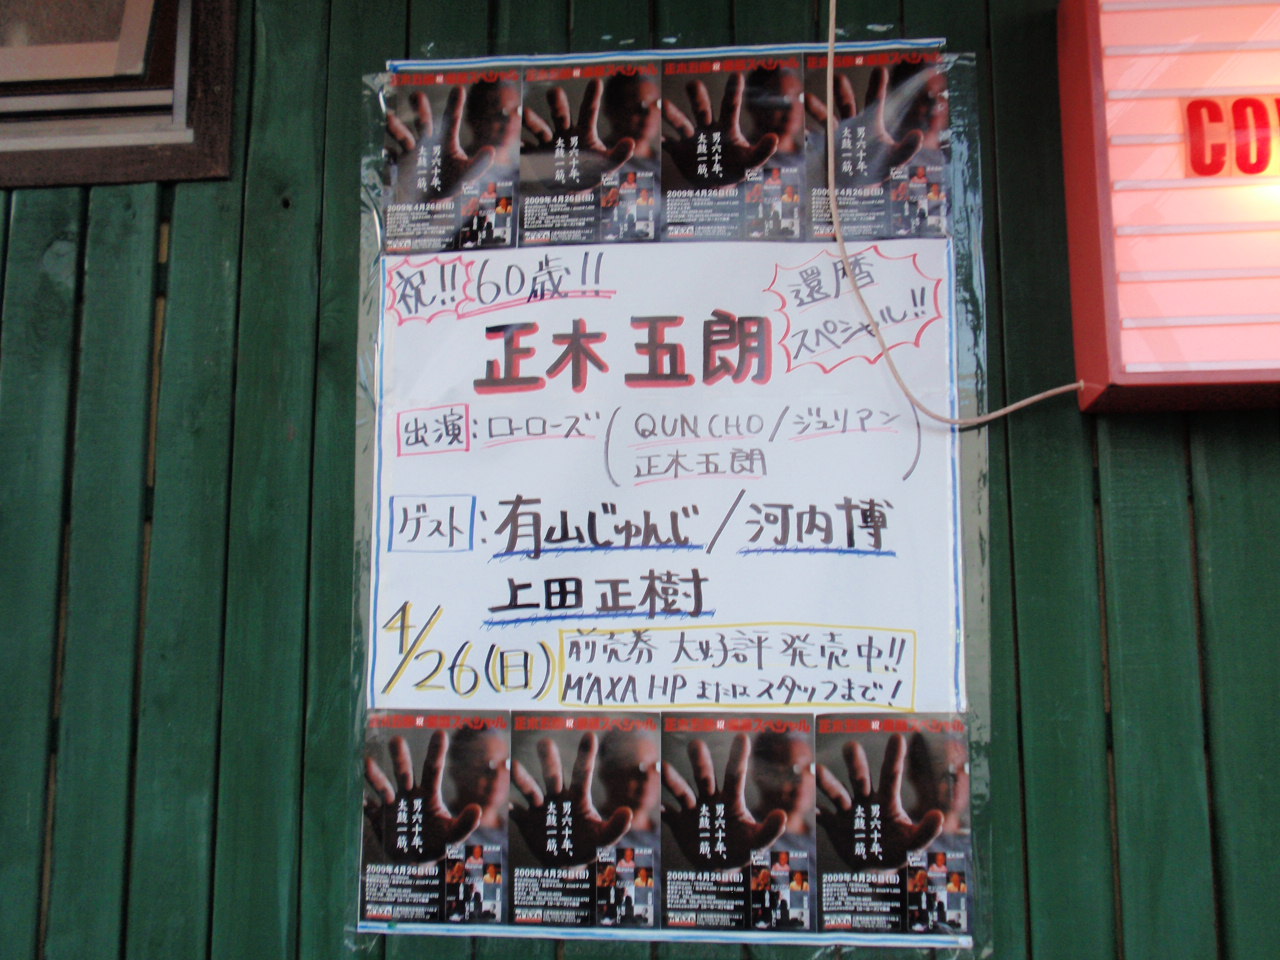 正木五朗 祝 還暦スペシャル
正木五朗 祝 還暦スペシャル
正木五朗 祝 還暦スペシャル
正木五朗 祝 還暦スペシャル
男六十年、
太鼓一筋。
男六十年、
太鼓一筋。
男六十年、
太鼓一筋。
男六十年、
太鼓一筋。
2009年4月26日(日)
2009年4月26日(日)
2009年4月26日(日)
2009年4月26日(日)
CO
祝!! 60歳!!
還暦
スペシャル!!
正木五朗
出演:ローローズ(QUNCHO/ジュリアン
正木五朗)
ゲスト:有山じゅんじ/河内博
上田正樹
4/26(日)
前売券 大好評発売中!!
M'AXA HP またはスタッフまで!
正木五朗 祝 還暦スペシャル
正木五朗 祝 還暦スペシャル
正木五朗 祝 還暦スペシャル
正木五朗 祝 還暦スペシャル
男六十年、
太鼓一筋。
男六十年、
太鼓一筋。
男六十年、
太鼓一筋。
男六十年、
太鼓一筋。
2009年4月26日(日)
2009年4月26日(日)
2009年4月26日(日)
2009年4月26日(日)